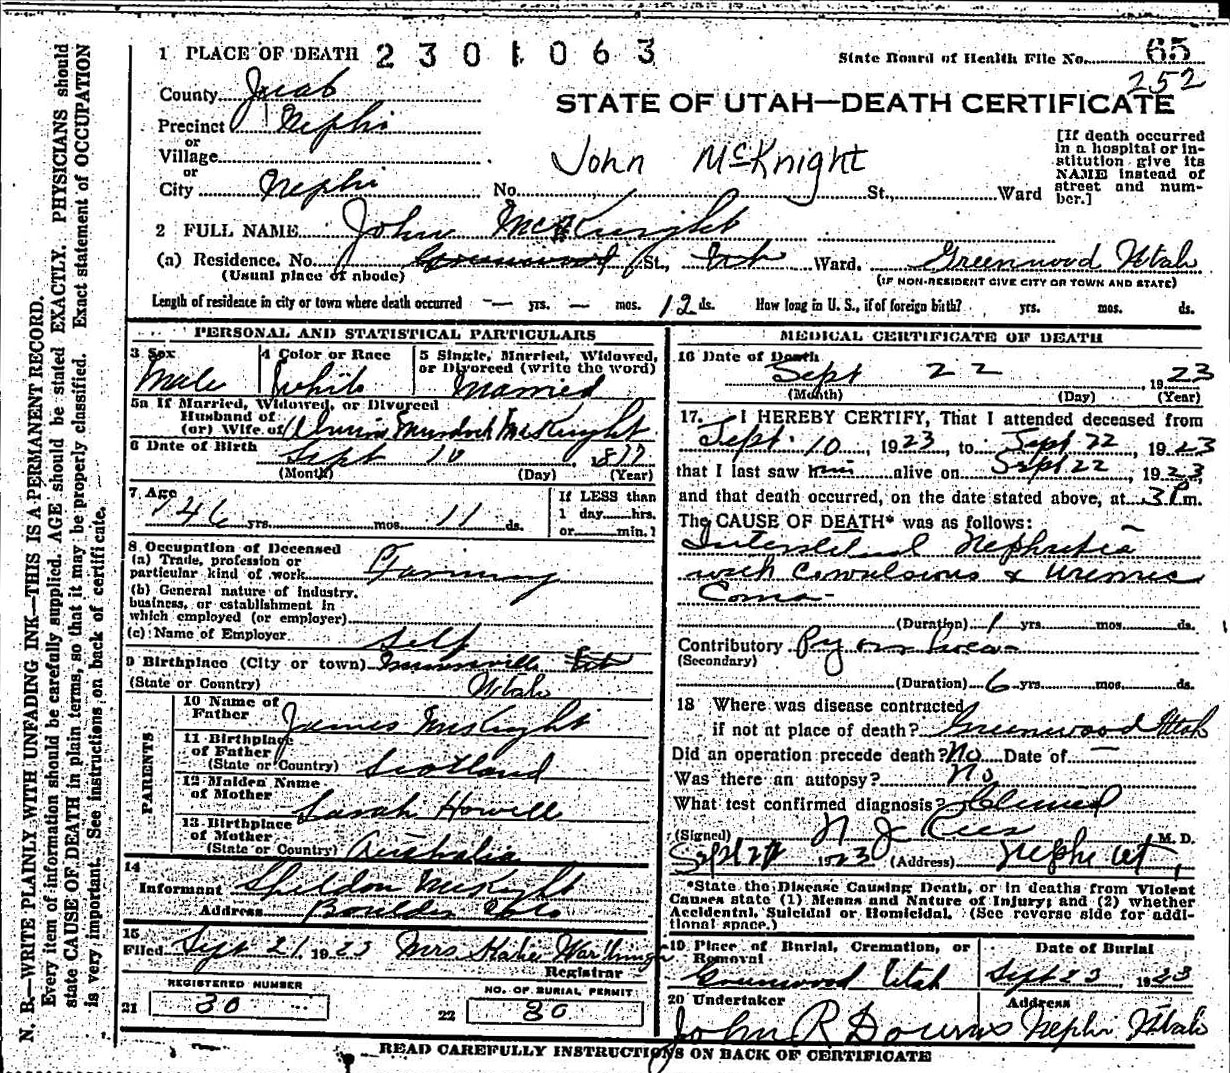 1 PLACE OF DEATH 2301063 State Board of Health File No. 65
252
County Juab
STATE OF UTAH—DEATH CERTIFICATE
Precinct Nephi
or
Village
or
City Nephi No. St., Ward
John McKnight
[If death occurred
in a hospital or in-
stitution give its
NAME instead of
street and num-
ber.]
2 FULL NAME John McKnight
(a) Residence. No. Greenwood St., Utah Ward. Greenwood Utah
(Usual place of abode) (IF NON-RESIDENT GIVE CITY OR TOWN AND STATE)
Length of residence in city or town where death occurred — yrs. — mos. 12 ds. How long in U. S., if of foreign birth? yrs. mos. ds.
PERSONAL AND STATISTICAL PARTICULARS
3 Sex
Male
4 Color or Race
White
5 Single, Married, Widowed,
or Divorced (write the word)
Married
5a If Married, Widowed, or Divorced
Husband of
(or) Wife of Murdock McKnight
6 Date of Birth Sept 10 1877
(Month) (Day) (Year)
7 Age
46 yrs. mos. 11 ds.
If LESS than
1 day hrs.
or min.?
8 Occupation of Deceased
(a) Trade, profession or
particular kind of work Farming
(b) General nature of industry,
business, or establishment in
which employed (or employer)
(c) Name of Employer Self
9 Birthplace (City or town) Minersville Utah
(State or Country) Utah
PARENTS
10 Name of
Father James McKnight
11 Birthplace
of Father
(State or Country) Scotland
12 Maiden Name
of Mother Sarah Howell
13 Birthplace
of Mother
(State or Country) Australia
14
Informant Sheldon McKnight
Address Boulder Colo
15
Filed Sept 21 1923 Mrs Katie
Registrar
REGISTERED NUMBER
21 30
NO. OF BURIAL PERMIT
22 30
MEDICAL CERTIFICATE OF DEATH
16 Date of Death
Sept 22, 1923
(Month) (Day) (Year)
17. I HEREBY CERTIFY, That I attended deceased from
Sept. 10, 1923, to Sept 22, 1923
that I last saw him alive on Sept 22, 1923,
and that death occurred, on the date stated above, at 3 P m.
The CAUSE OF DEATH* was as follows:
Interstitial Nephritis
with Convulsions & Uremic
Coma
(Duration) 1 yrs. mos. ds.
Contributory Pyorrhoea
(Secondary)
(Duration) 6 yrs. mos. ds.
18 Where was disease contracted
if not at place of death? Greenwood Utah
Did an operation precede death? No Date of —
Was there an autopsy? No
What test confirmed diagnosis? Clinical
(Signed) N J Rees M. D.
Sept 22 1923 (Address) Nephi Ut
*State the Disease Causing Death, or in deaths from Violent
Causes state (1) Means and Nature of Injury; and (2) whether
Accidental, Suicidal or Homicidal. (See reverse side for addi-
tional space.)
19 Place of Burial, Cremation, or
Removal
Greenwood Utah
Date of Burial
Sept 23 1923
20 Undertaker
John R Downs
Address
Nephi Utah
READ CAREFULLY INSTRUCTIONS ON BACK OF CERTIFICATE
N. B.—WRITE PLAINLY WITH UNFADING INK—THIS IS A PERMANENT RECORD.
Every item of information should be carefully supplied. AGE should be stated EXACTLY. PHYSICIANS should
state CAUSE OF DEATH in plain terms, so that it may be properly classified. Exact statement of OCCUPATION
is very important. See instructions on back of certificate.